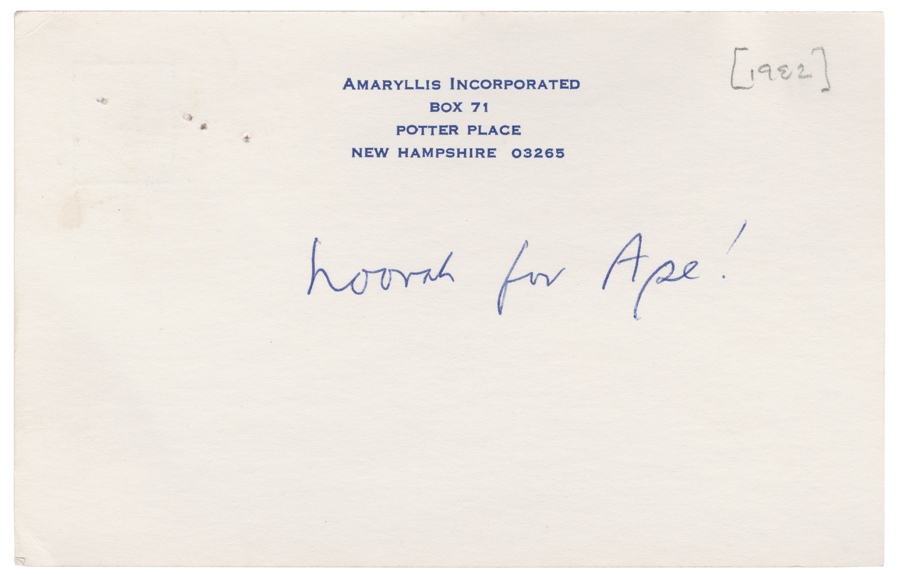 [1982]
Amaryllis Incorporated
BOX 71
POTTER PLACE
NEW HAMPSHIRE 03265
hoorah for Ape!